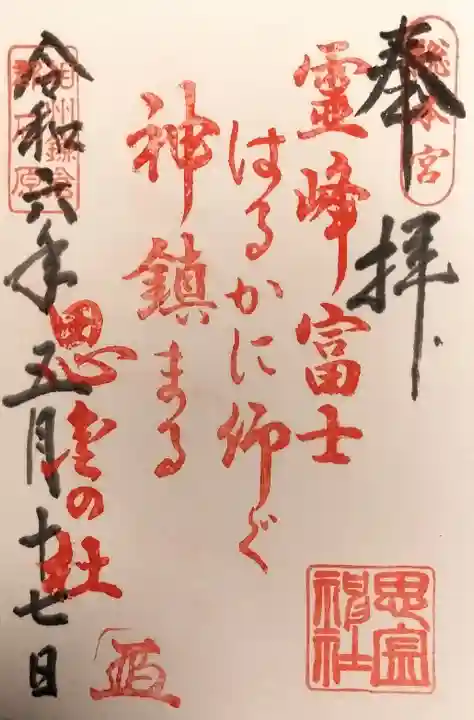 奉拝
総本宮
靈峰富士
はるかに仰ぐ
神鎮まる
思金の杜
令和六年五月十七日
相州鎌倉
思金神社